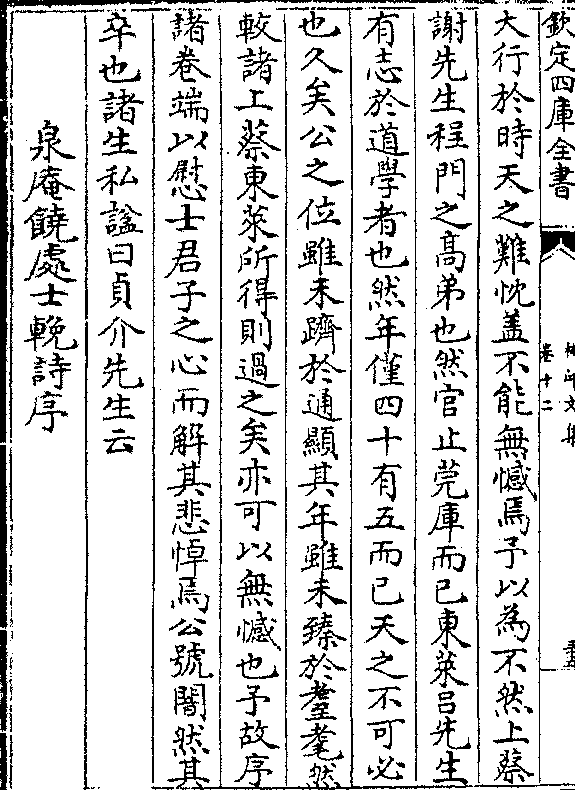 欽定四庫全書
卷十二
大行於時天之難忱蓋不能無憾焉予以為不然上蔡
謝先生程門之高弟也然官止筦庫而已東萊呂先生
有志於道學者也然年僅四十有五而已天之不可必
也久矣公之位雖未躋於通顯其年雖未臻於耄耋然
較諸上蔡東萊所得則過之矣亦可以無憾也予故序
諸卷端以慰士君子之心而解其悲悼焉公號闇然其
卒也諸生私諡曰貞介先生云
泉庵饒處士輓詩序